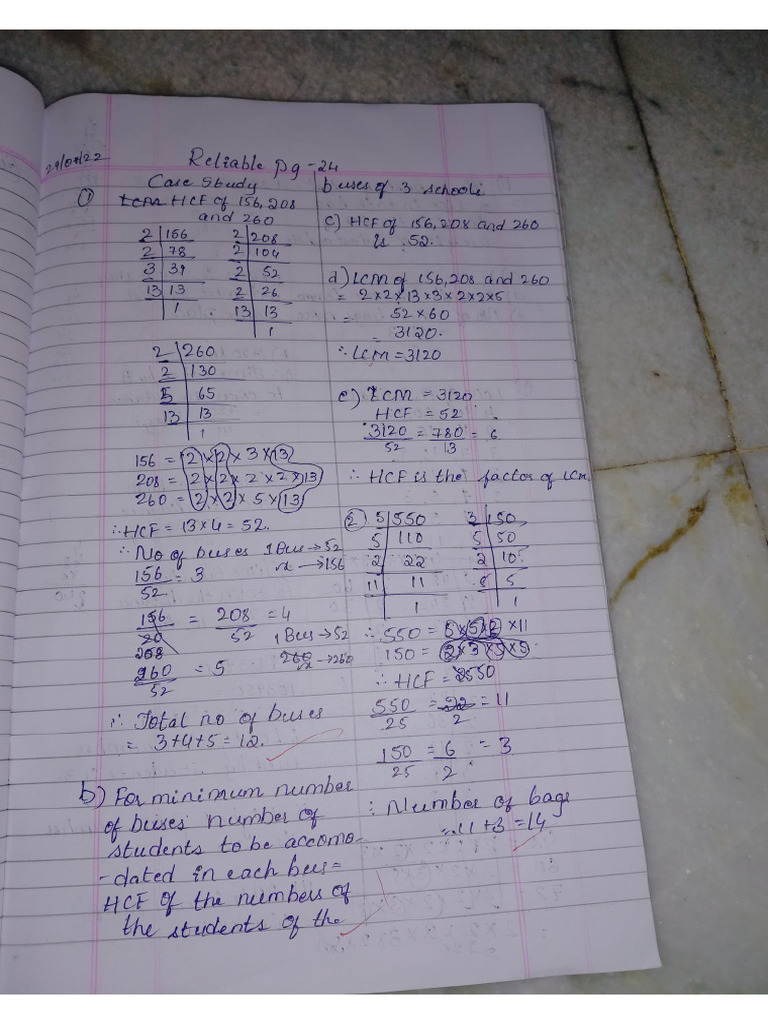 29/07/22
Reliable pg -24
Case Study
① HCF of 156, 208
and 260
2 | 156
2 | 78
3 | 39
13 | 13
1
2 | 208
2 | 104
2 | 52
2 | 26
13 | 13
1
2 | 260
2 | 130
5 | 65
13 | 13
1
156 = 2 × 2 × 3 × 13
208 = 2 × 2 × 2 × 2 × 13
260 = 2 × 2 × 5 × 13
∴ HCF = 13 × 4 = 52.
∴ No of buses 1 Bus → 52
156/52 = 3 x → 156
156/20 = 208/52 = 4 1 Bus → 52
208
260/52 = 5 260 x → 260
∴ Total no of buses
= 3+4+5 = 12.
b) For minimum number
of buses number of
students to be accomo-
-dated in each bus =
HCF of the numbers of
the students of the
buses of 3 schools
c) HCF of 156, 208 and 260
is 52.
d) LCM of 156, 208 and 260
= 2×2×13×3×2×2×5
= 52 × 60
= 3120.
∴ LCM = 3120
e) LCM = 3120
HCF = 52
3120/52 = 780/13 = 6
∴ HCF is the factor of LCM
② 5 | 550
5 | 110
2 | 22
11 | 11
1
3 | 150
5 | 50
2 | 10
5 | 5
1
∴ 550 = 5×5×2×11
150 = 2×3×5×5
∴ HCF = 50
550/25 = 22/2 = 11
150/25 = 6/2 = 3
∴ Number of bags
= 11 + 3 = 14